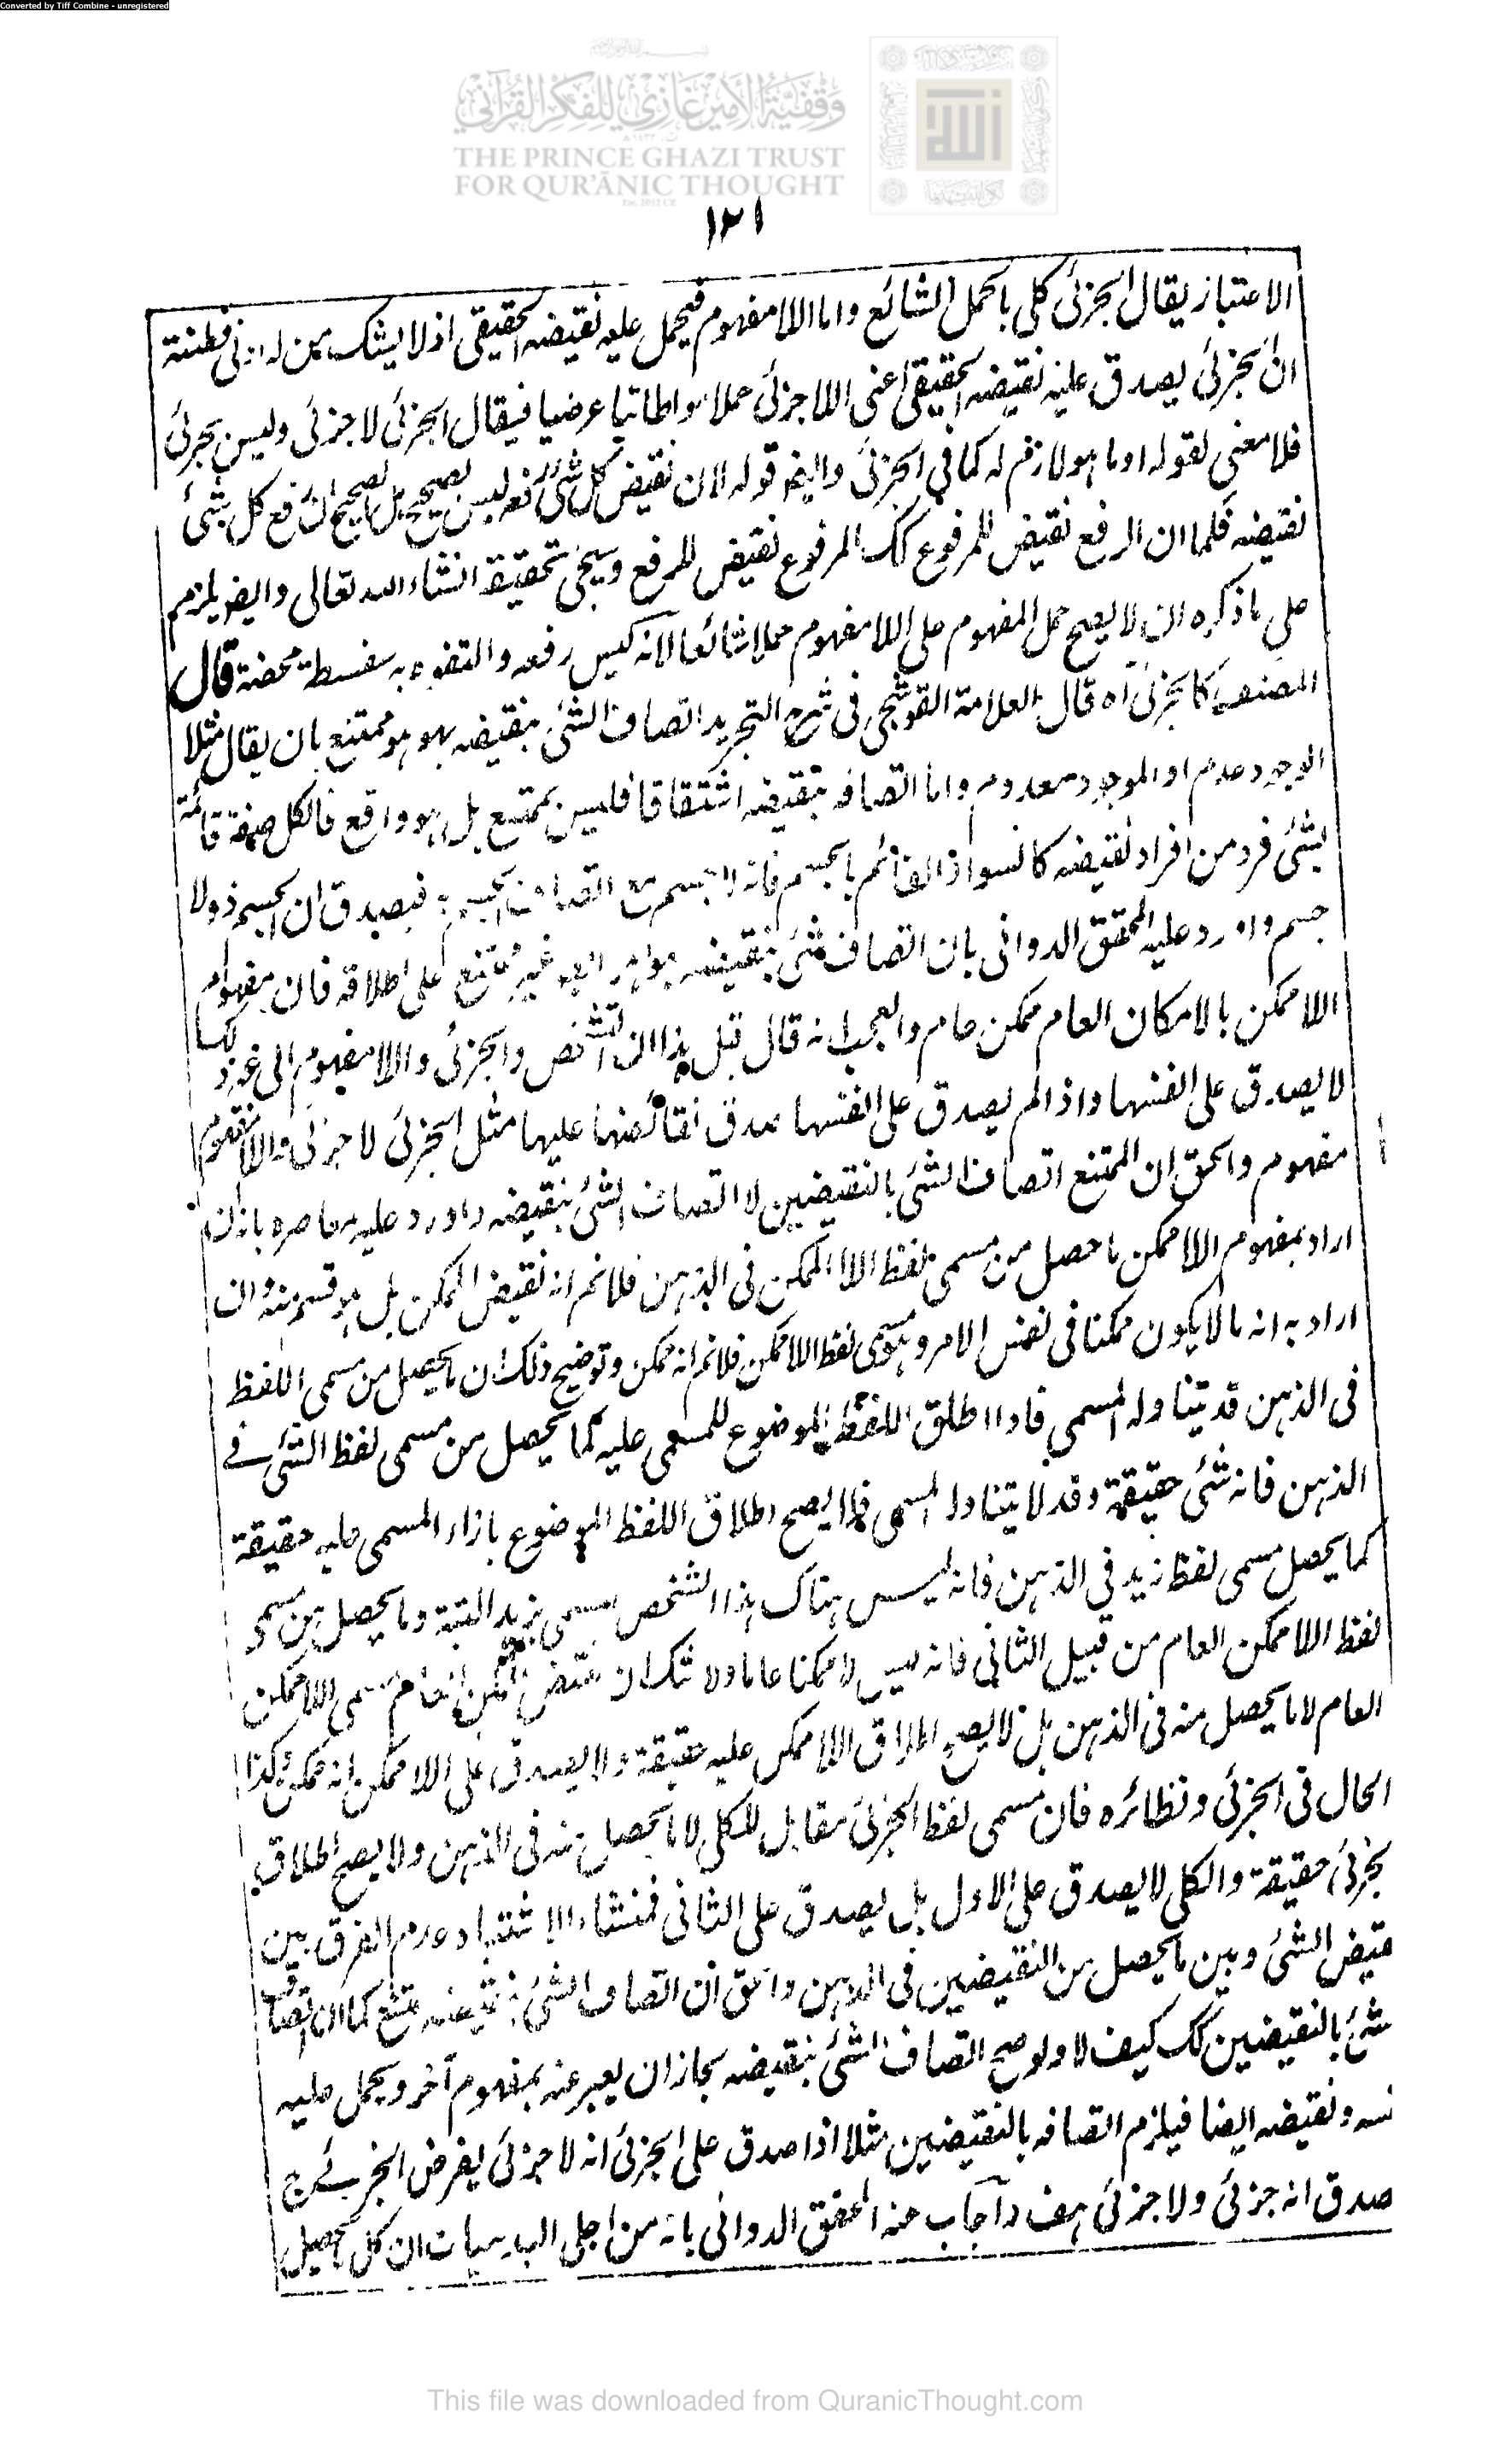 Converted by Tiff Combine - unregistered
وقفية الأمير غازي للفكر القرآني
THE PRINCE GHAZI TRUST
FOR QUR'ĀNIC THOUGHT
١٢١
الاعتبار يقال الجزئى كلى بالحمل الشائع واما اللامفهوم فيحمل عليه نقيضه الحقيقى اذ لا يشك من له ادنى فطنة
ان الجزئى يصدق عليه نقيضه الحقيقى اعنى اللاجزئى حملا مواطاتيا عرضيا فيقال الجزئى لا جزئى وليس بجزئى
فلا معنى لقوله او ما هو لازم له كما فى الجزئى وايضا قوله لان نقيض كل شئ رفعه ليس بصحيح بل الصحيح ان رفع كل شئ
نقيضه فكما ان الرفع نقيض للمرفوع كك المرفوع نقيض للرفع ويجئ تحقيقه انشاء الله تعالى وايضا يلزم
على ما ذكره ان لا يصح حمل المفهوم على اللامفهوم حملا شائعا لانه ليس رفعه والتفوه به سفسطة محضة قال
المصنف كالجزئى اه قال العلامة القوشجى فى شرح التجريد اتصاف الشئ بنقيضه بهو هو ممتنع بان يقال مثلا
الوجود عدم او الموجود معدوم واما اتصافه بنقيضه اشتقاقا فليس بممتنع بل هو واقع فالكل صفة قائمة
بشئ فرد من افراد نقيضه كالسواد القائم بالجسم فانه لا جسم مع اتصاف الجسم به فيصدق ان الجسم ذو لا
جسم واورد عليه المحقق الدوانى بان اتصاف شئ بنقيضه هو هو غير ممتنع على اطلاقه فان مفهوم
اللاممكن بالامكان العام ممكن عام والعجب انه قال قبل هذا ان التشخص والجزئى واللامفهوم الى غير ذلك
لا يصدق على انفسها واذا لم يصدق على انفسها صدق نقائضها عليها مثل الجزئى لا جزئى واللامفهوم
مفهوم والحق ان الممتنع اتصاف الشئ بالنقيضين لا اتصاف الشئ بنقيضه واورد عليه معاصره بانه ان
اراد بمفهوم اللاممكن ما حصل من مسمى لفظ اللاممكن فى الذهن فلانم انه نقيض الممكن بل هو قسم منه وان
اراد به انه ما لا يكون ممكنا فى نفس الامر وهو مسمى لفظ اللاممكن فلانم انه ممكن وتوضيح ذلك ان ما يحصل من مسمى اللفظ
فى الذهن قد يتناوله المسمى فاذا اطلق اللفظ الموضوع للمسمى عليه كما يحصل من مسمى لفظ الشئ فى
الذهن فانه شئ حقيقة وقد لا يتناوله المسمى فلا يصح اطلاق اللفظ الموضوع بازاء المسمى عليه حقيقة
كما يحصل مسمى لفظ زيد فى الذهن فانه ليس هناك هذا الشخص المسمى بزيد البتة وما يحصل من مسمى
لفظ اللاممكن العام من قبيل الثانى فانه ليس لا ممكنا عاما ولا شك ان نقيض الممكن العام مسمى اللاممكن
العام لا ما يحصل منه فى الذهن بل لا يصح اطلاق اللاممكن عليه حقيقة ولا يصدق على اللاممكن انه ممكن وكذا
الحال فى الجزئى ونظائره فان مسمى لفظ الجزئى مقابل للكلى لا ما يحصل منه فى الذهن ولا يصح اطلاق
الجزئى حقيقة والكلى لا يصدق على الاول بل يصدق على الثانى فمنشاء الاشتباه عدم الفرق بين
نقيض الشئ وبين ما يحصل من النقيضين فى الذهن والحق ان اتصاف الشئ بنقيضه ممتنع كما ان اتصاف
شئ بالنقيضين كك كيف لا ولو صح اتصاف الشئ بنقيضه لجاز ان يعبر عنه بمفهوم آخر ويحمل عليه
نفسه ونقيضه ايضا فيلزم اتصافه بالنقيضين مثلا اذا صدق على الجزئى انه لا جزئى يفرض الجزئى ج
صدق انه جزئى ولا جزئى هف واجاب عنه المحقق الدوانى بانه من اجلى البديهيات ان كل ما يحصل
This file was downloaded from QuranicThought.com